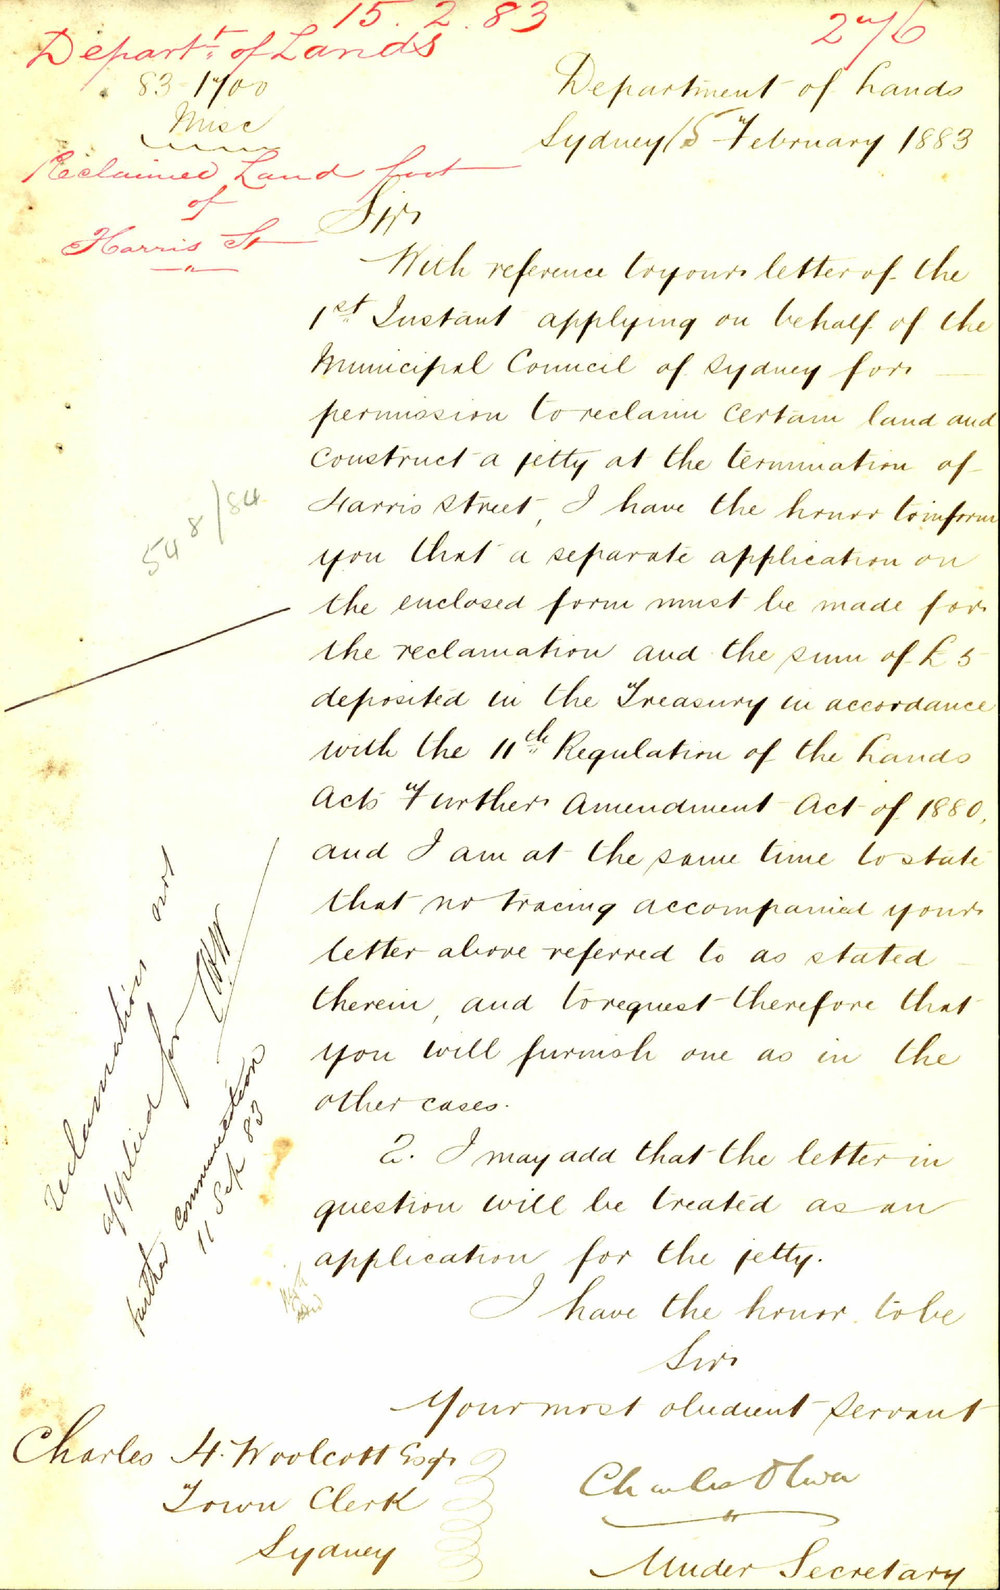 15. 2. 83
276
Depart.t of Lands
83-1700
Misc
Reclaimed Land foot
of
Harris St
Department of Lands
Sydney 15 February 1883
Sir
With reference to your letter of the
1st Instant applying on behalf of the
Municipal Council of Sydney for
permission to reclaim certain land and
construct a jetty at the termination of
Harris Street, I have the honor to inform
you that a separate application on
the enclosed form must be made for
the reclamation and the sum of £5
deposited in the Treasury in accordance
with the 11th Regulation of the Lands
Acts Further Amendment Act of 1880,
and I am at the same time to state
that no tracing accompanied your
letter above referred to as stated
therein, and to request therefore that
you will furnish one as in the
other cases.
2. I may add that the letter in
question will be treated as an
application for the jetty.
I have the honor to be
Sir
Your most obedient servant
Charles Oliver
Under Secretary
Charles H. Woolcott Esqr
Town Clerk
Sydney
548/84
reclamation not
applied for
further communication
11 Sep 83